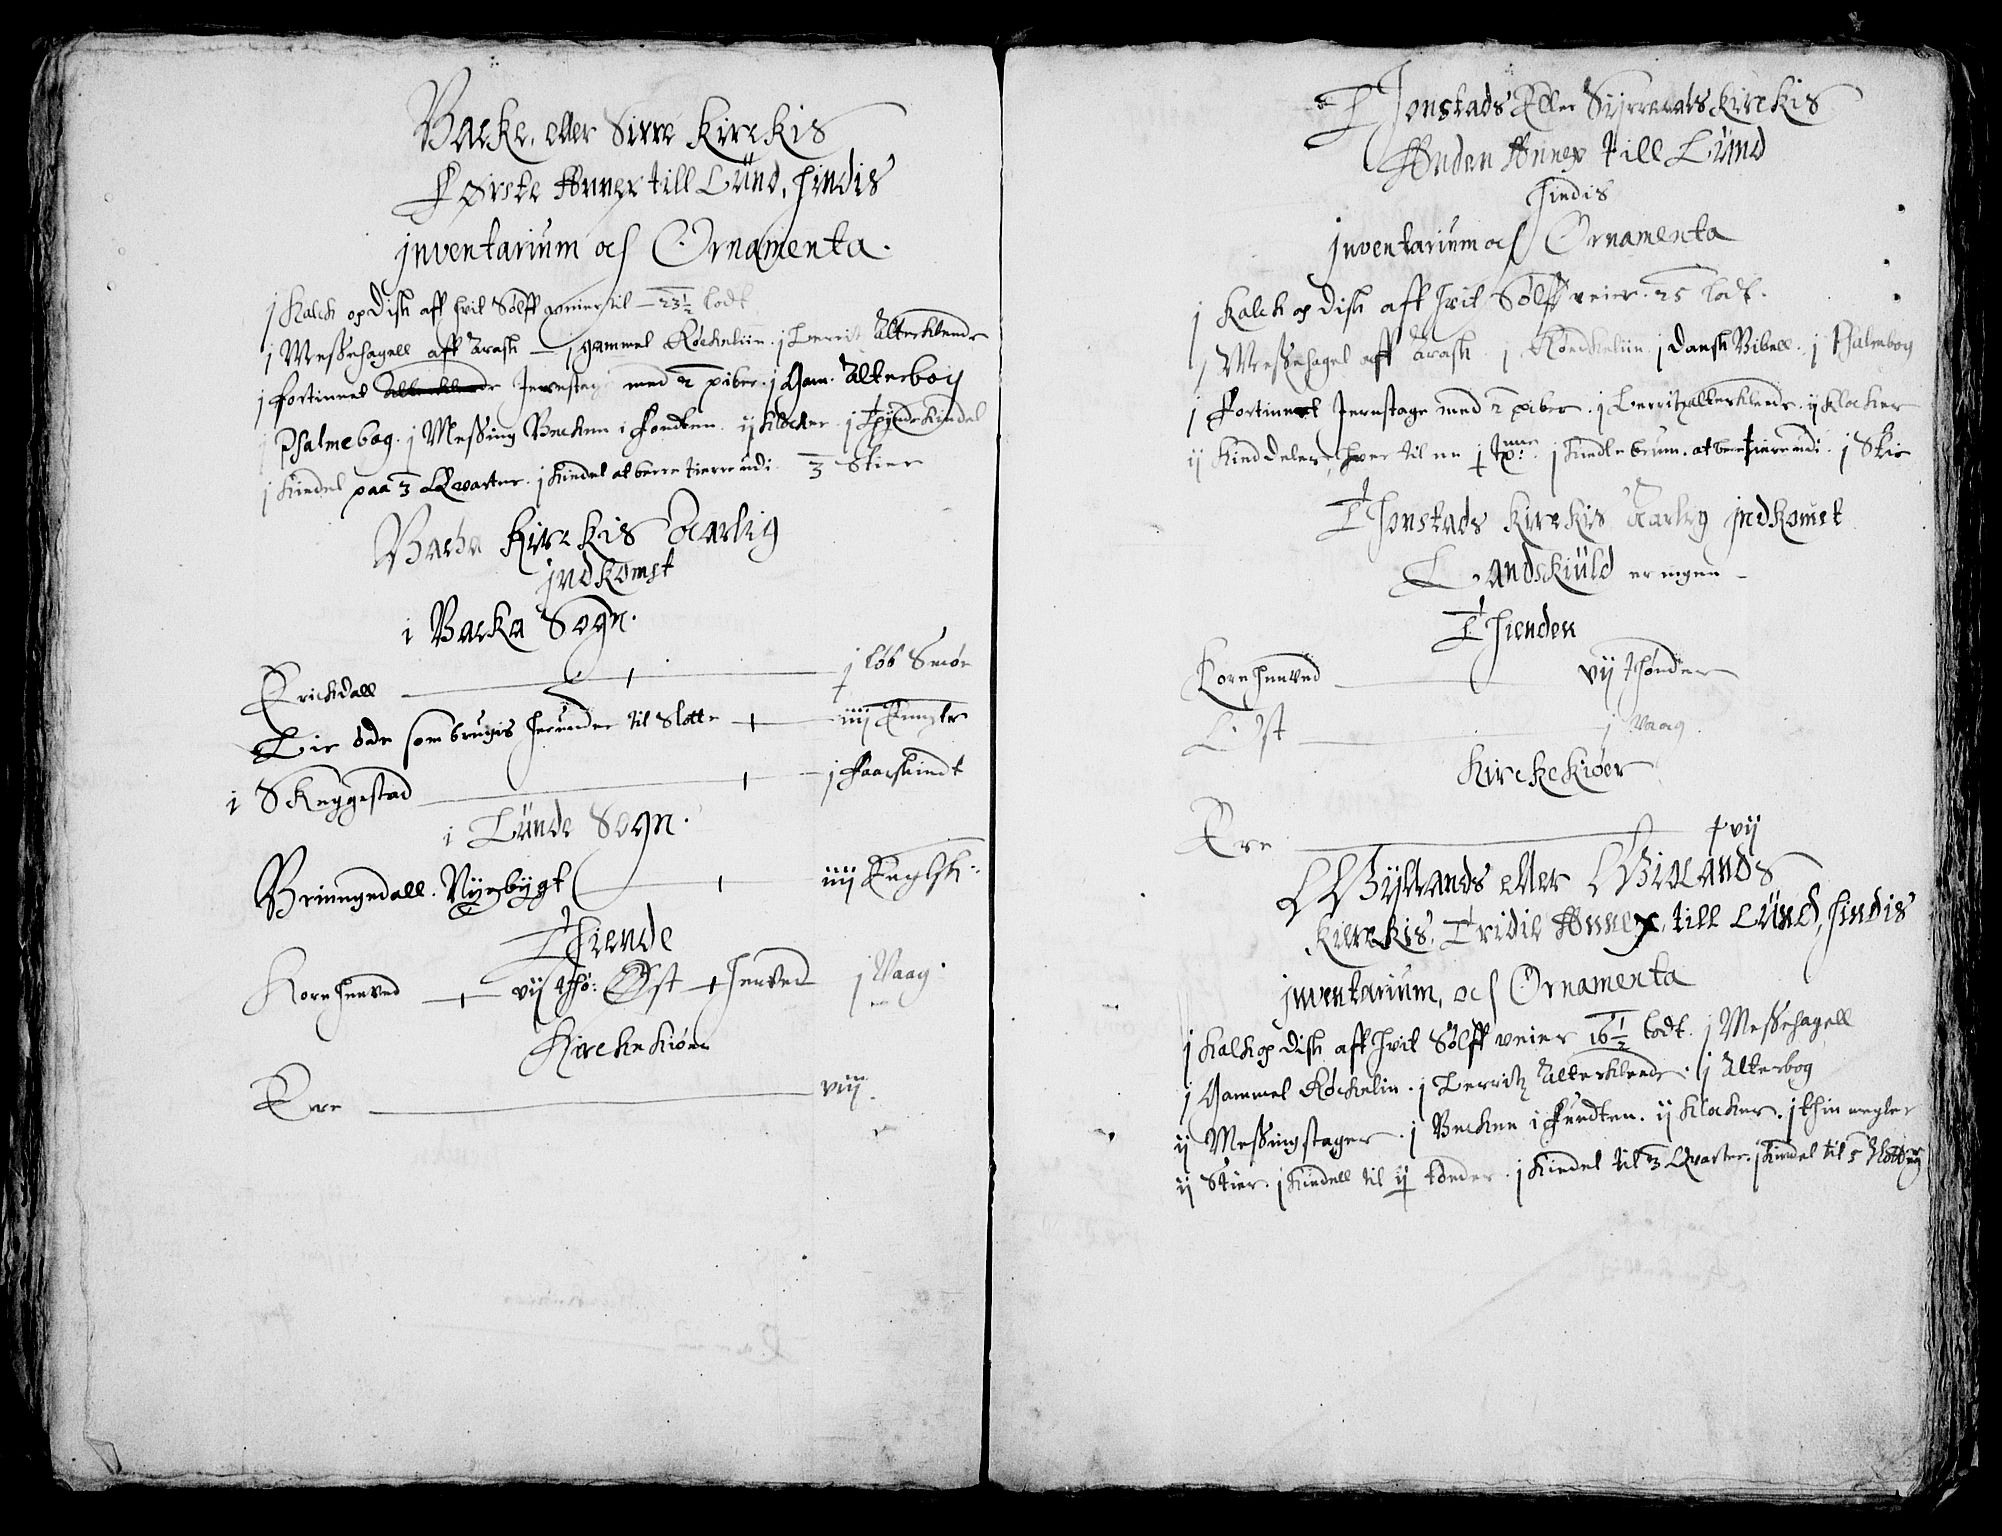 Backe, eller Sirre Kirckis
Første Annex till Lünd, hindis
jnventarium och Ornamenta.
j Kalck op Disk aff hvit Sølff veier til 23½ lodt
j Messehagell aff Arask – j gammel Røckeliin. j Lerrit Alterklæde
j fortinnet Jernstage med 2 piber. j Gam. Alterbog
j Psalmebog. j Messing Becken i Fondten. ij Klocker.
j Kiedel paa 3 Qvarter. j Kiedel at berre tierre udi. 3 Skier
Backa Kirckis Aarlig
jndkomst
i Backa Sogn.
Erickdall j løb Smør
Lir øde som brugis herunder til Slotte iiij Engler
i Skeggestad j Faarskindt
i Lünde Sogn.
Briningedall. Nyebygt iiij Englsk:
Thiende
Korn henved vij thø: Ost henved j Vaag.
Kirckekiøer
Ere viij.
Thonstads Eller Syrredals Kirckis
Anden Annex till Lünd
hindis
jnventarium och Ornamenta
j Kalck op Disk aff hvit Sølff veier. 25 lodt.
j Messehagel aff Arask. j Røeckeliin. j Dansk Bibell. j Psalmebog
j Fortinnet Jernstage med 2 piber. j Lerritz alterklæde. ij Klocker
ij Kieddeler, hver til en j Skie
Thonstads Kirckis Aarlig jndkomst
Landskiüld er ingen –
Thienden
Korn henved vij thønder
Ost j Vaag.
Kirckekiøer
Ere vij
Gyllands eller Gielands
Kirckis, Tridie Annex, till Lünd, hindis
jnventarium, och Ornamenta
j Kalk op Disk aff hvit Sølff veier 16½ lodt. j Messehagell
j Gammel Røckelin. j Lerritz Alterklæde. j Alterbog
ij Messingstager. j Becken i Fundten. ij Klocker. j thin
ij Skier. j Kiedell til ij tønder. j Kiedel til 3 Qvarter. j Kiedel til 5